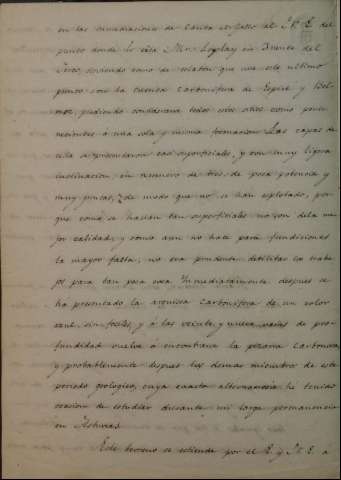 en las inmediaciones de Santa          al N. E. del
punto donde lo cita Mr. Leplay en Fuente del
Arco, sirviendo como de eslabon que una este ultimo
punto con la cuenca carbonifera de Espiel y Bel-
mez, pudiendo considerarse todos estos sitios como perte-
necientes á una sola y misma formacion. Las capas de
ulla se presentaron casi superficiales, y con muy ligera
inclinacion, en numero de tres de poca potencia y
muy puras, de modo que no se han esplotado, por-
que como se hacian tan superficiales no son de la me-
jor calidad, y como aun no hace para fundiciones
la mayor falta, no era prudente debilitar los traba-
jos para tan poca cosa. Inmediatamente despues se
ha presentado la arquisca carbonifera de un color
azul, sin fosiles, y á las veinte y nueve varas de pro-
fundidad vuelve á encontrarse la pizarra carbonosa
y probablemente despues los demas miembros de este
periodo geologico, cuya exacta alternancia hé tenido
ocasion de estudiar durante mi larga permanencia
en Asturias.
Este terreno se estiende por el E. y N. E. a